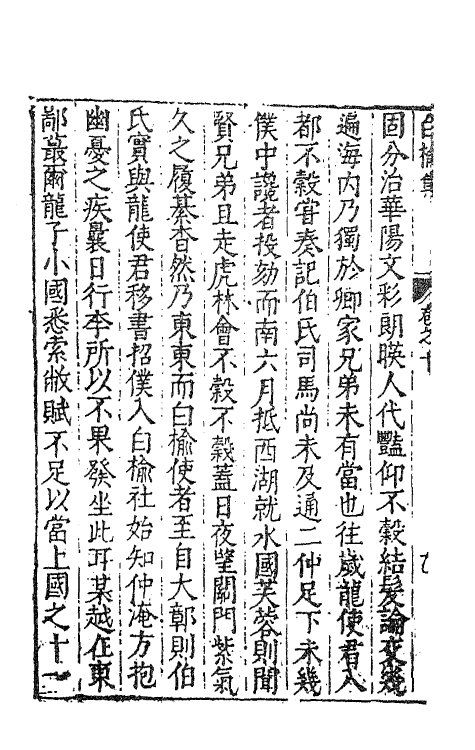 白榆集 卷之十
固分治華陽文彩朗暎人代豔仰不穀結髮論交幾
遍海内乃獨於卿家兄弟未有當也往歲龍使君入
都不穀甞奏記伯氏司馬尚未及通二仲足下未幾
僕中讒者投劾而南六月抵西湖就水國芙蓉則聞
賢兄弟且走虎林會不穀不穀蓋日夜望關門紫氣
久之履綦杳然乃東東而白榆使者至自大鄣則伯
氏實與龍使君移書招僕入白榆社始知仲淹方抱
幽憂之疾曩日行李所以不果發坐此耳某越在東
鄙蕞爾龍子小國悉索敝賦不足以當上國之十一